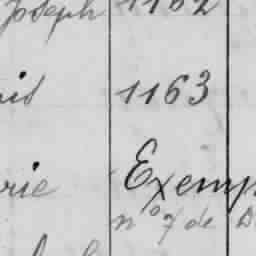 Joseph 1162
is 1163
rie Exemp
n° 7 de